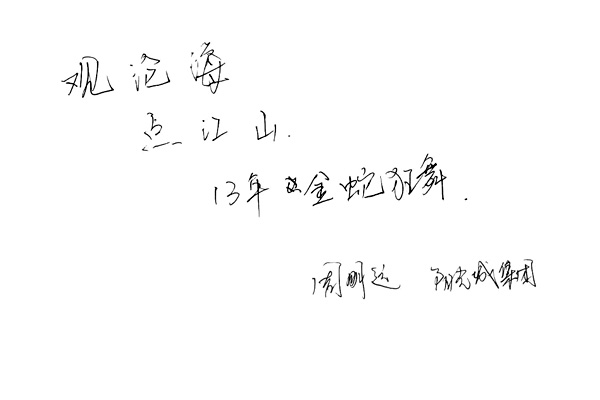 观沧海
点江山.
13年金蛇狂舞.
周明达 阳光城集团